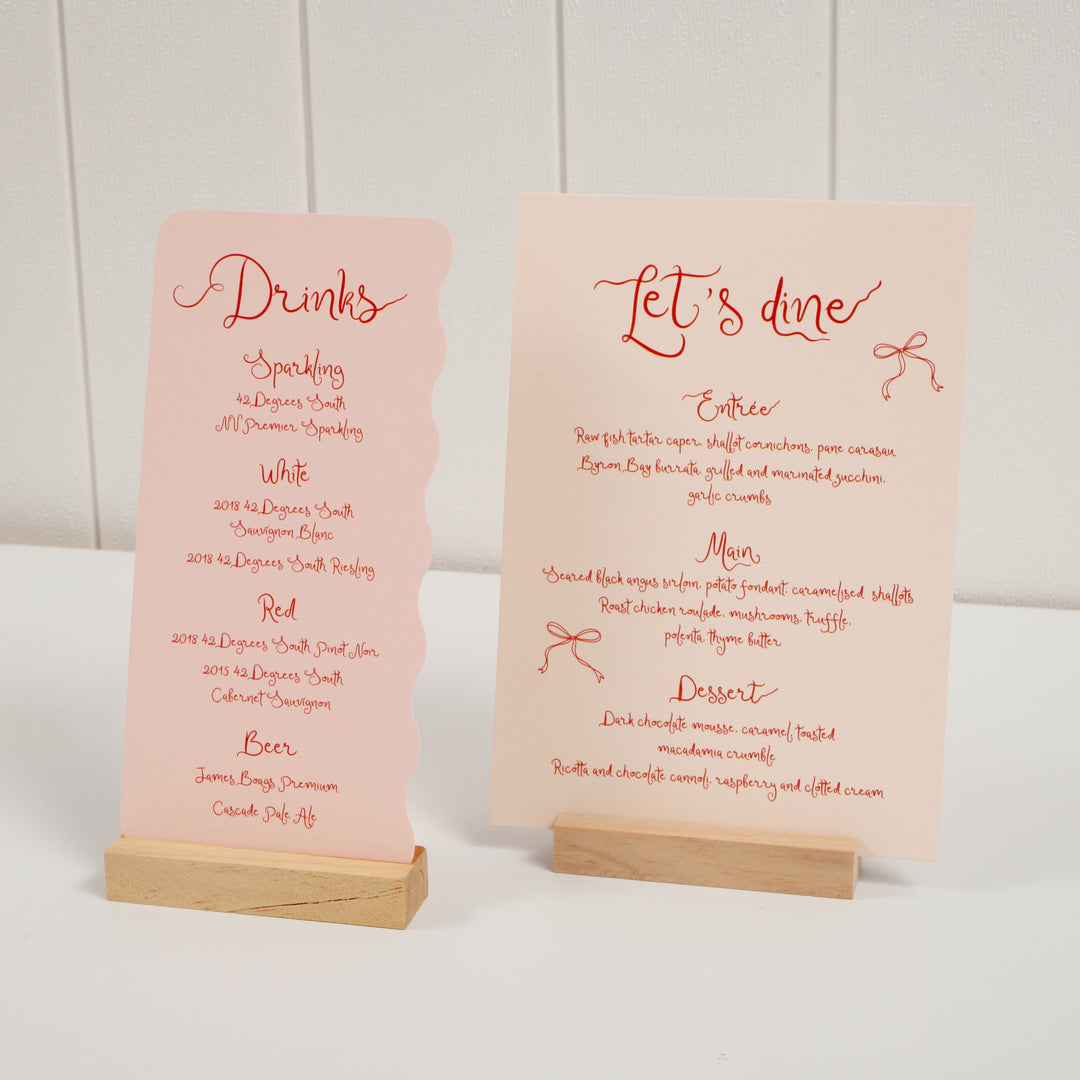 Drinks
Sparkling
42 Degrees South
NV Premier Sparkling
White
2018 42 Degrees South
Sauvignon Blanc
2018 42 Degrees South Riesling
Red
2018 42 Degrees South Pinot Noir
2015 42 Degrees South
Cabernet Sauvignon
Beer
James Boags Premium
Cascade Pale Ale
Let's dine
Entrée
Raw fish tartar caper, shallot cornichons, pane carasau
Byron Bay burrata, grilled and marinated zucchini,
garlic crumbs
Main
Seared black angus sirloin, potato fondant, caramelised shallots
Roast chicken roulade, mushrooms, truffle,
polenta, thyme butter
Dessert
Dark chocolate mousse, caramel, toasted
macadamia crumble
Ricotta and chocolate cannoli, raspberry and clotted cream